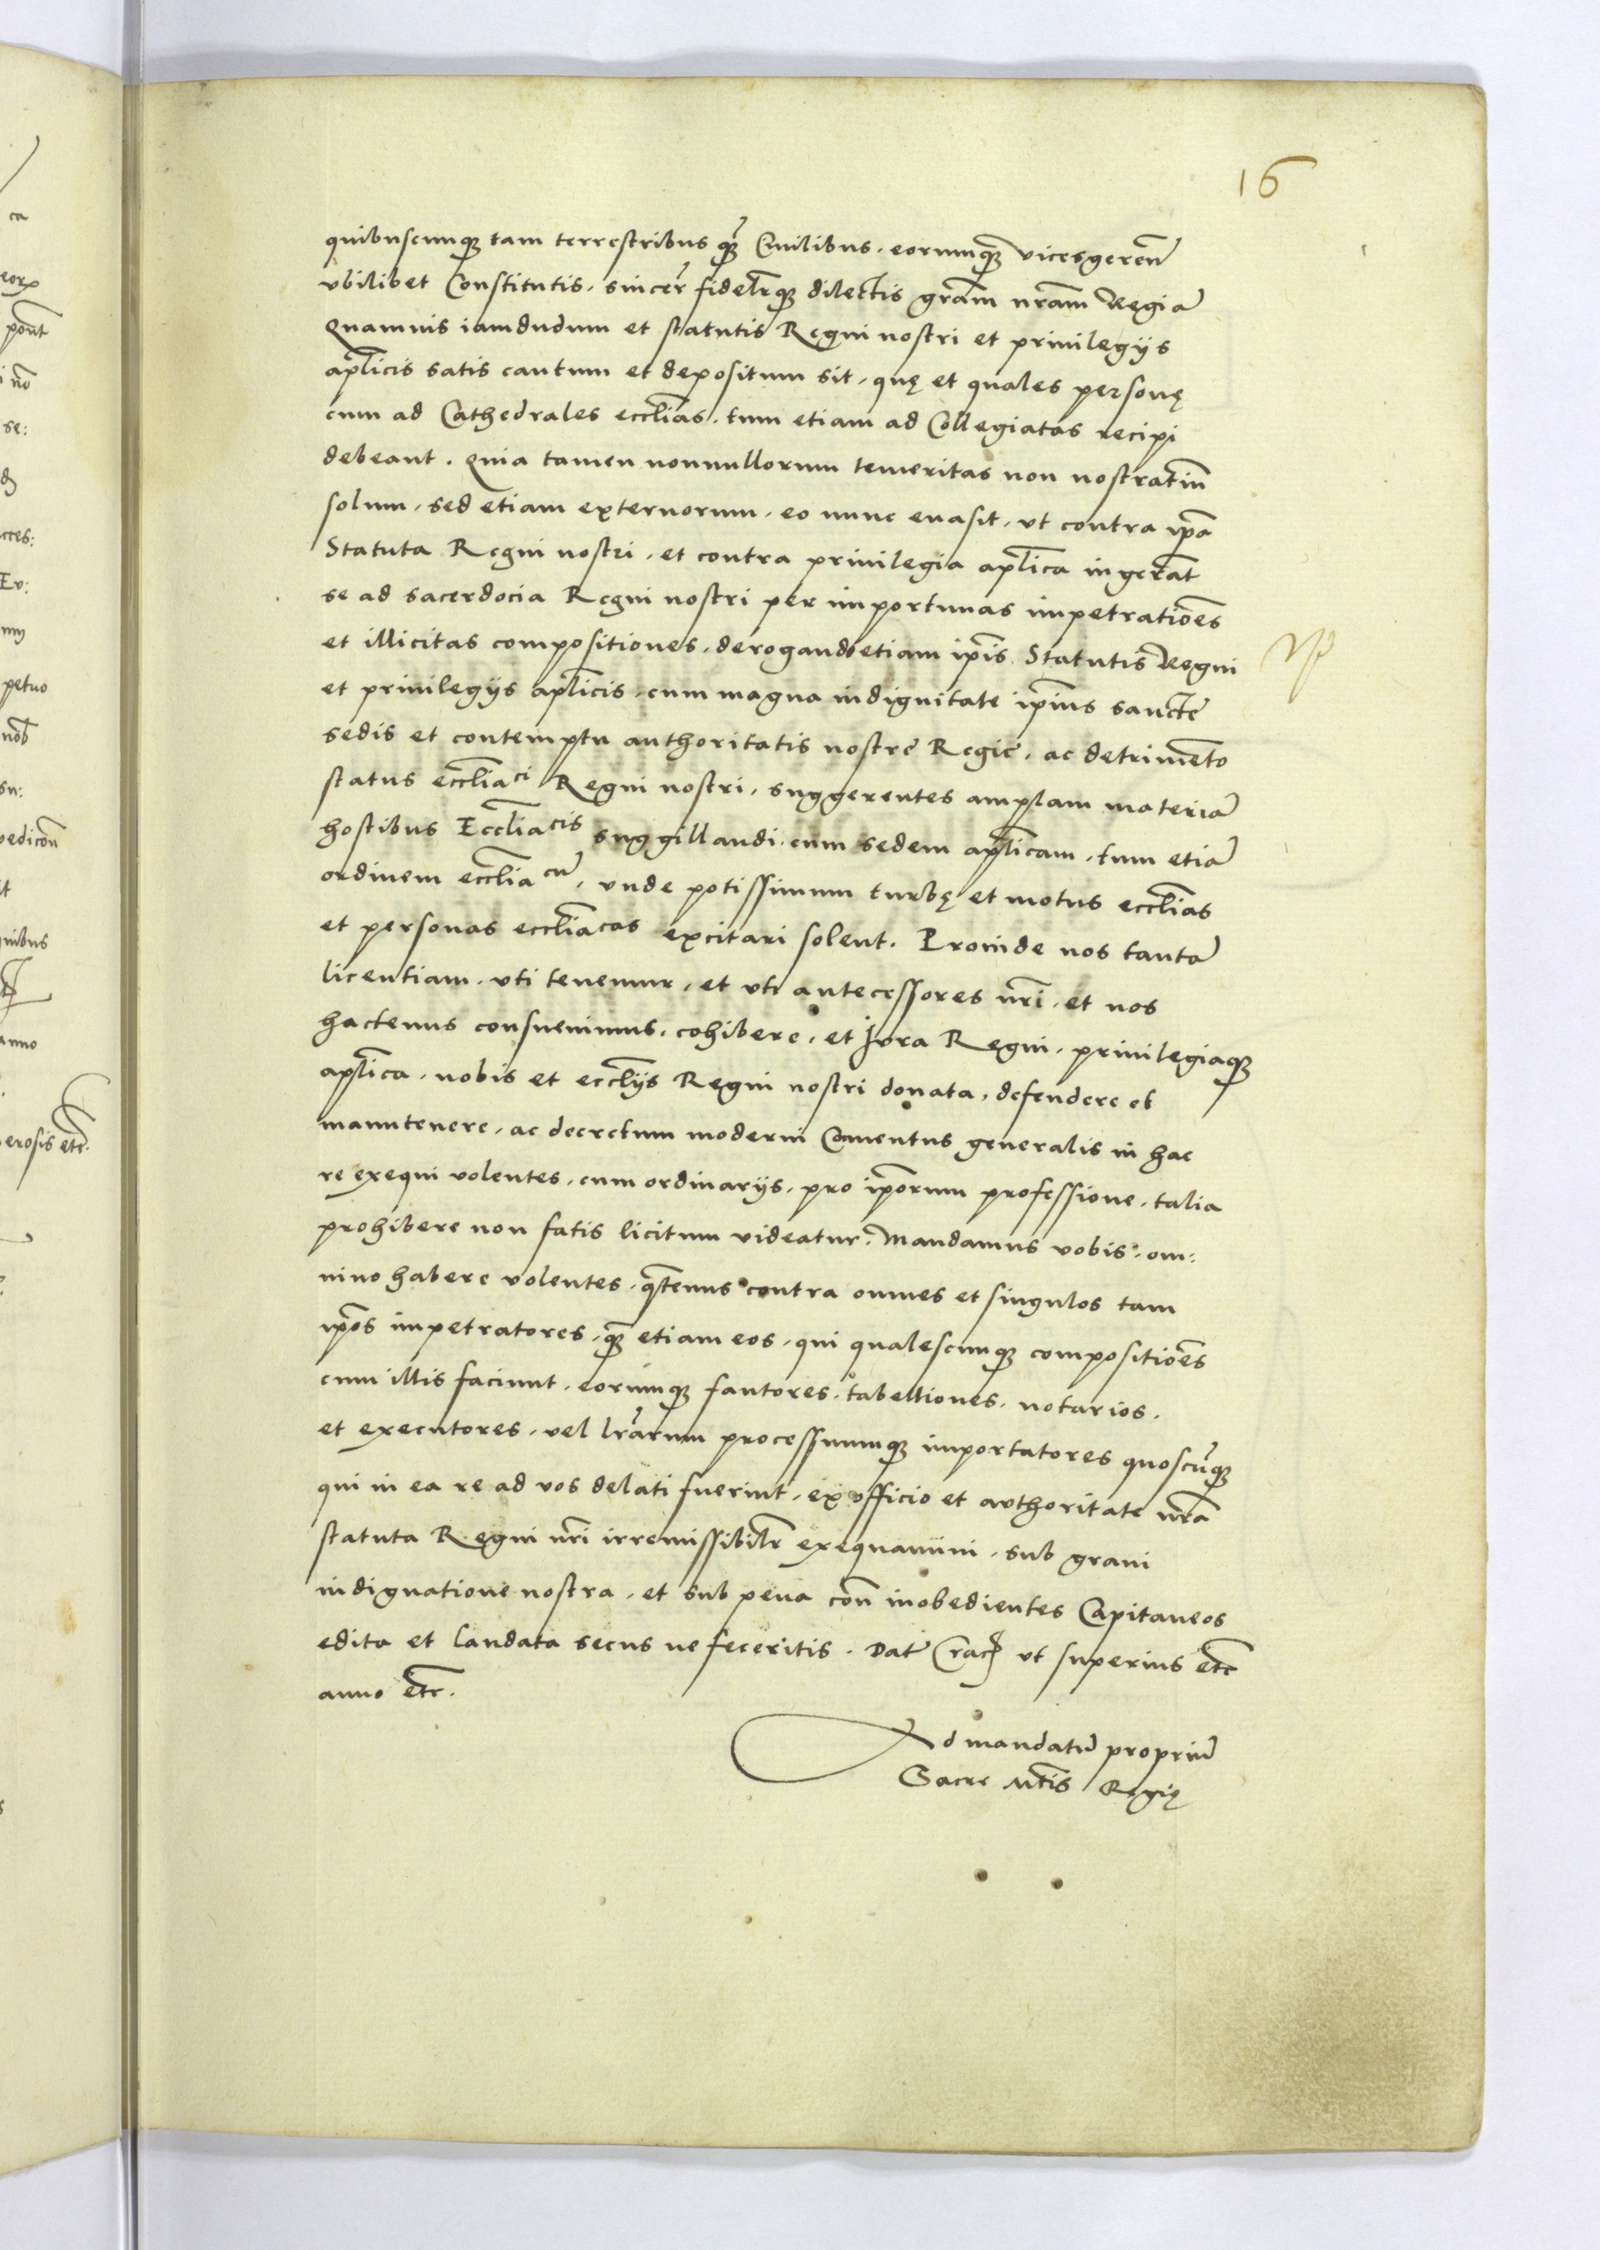 16
quibuscumq tam terrestribus q̃ Ciuilibus, eorumq vicesgereñ
vbilibet Constitutis, sincer̃ fidelr̃q dilectis gram̃ nram̃ Regiã
Quamuis iamdudum et statutis Regni nostri et priuilegijs
aplicis satis cautum et depositum sit, quę et quales personę
cum ad Cathedrales ecclias, tum etiam ad Collegiatas recipi
debeant. Quia tamen nonnullorum temeritas non nostratiũ
solum, sed etiam externorum, eo nunc euasit, vt contra ip̃a
Statuta Regni nostri, et contra priuilegia aplica ingerãt
se ad sacerdocia Regni nostri per importunas impetratiões
et illicitas compositiones, derogando etiam ip̃is Statutis Regni
et priuilegijs aplicis, cum magna indignitate ip̃ius sancte
sedis et contemptu authoritatis nostre Regie, ac detrimẽto
status eccliaci Regni nostri, suggerentes amplam materiã
hostibus Eccliacis suggillandi, cum sedem aplicam, tum etiã
ordinem eccliacũ, vnde potissimum turbę et motus ecclias
et personas eccliacas excitari solent. Proinde nos tantã
licentiam, vti tenemur, et vti antecessores nri, et nos
hactenus consueuimus, cohibere, et Jura Regni, priuilegiaq
aplica, nobis et ecclijs Regni nostri donata, defendere et
manutenere, ac decretum moderni Conuentus generalis in hac
re exequi volentes, cum ordinarijs, pro ip̃orum professione, talia
prohibere non satis licitum videatur. Mandamus vobis, om:
nino habere volentes, qtenus contra omnes et singulos tam
ip̃os impetratores, q̃ etiam eos, qui qualescumq compositiões
cum illis faciunt, eorumq fautores, tabelliones, notarios,
et executores, vel lr̃arum processuumq importatores quoscũq
qui in ea re ad vos delati fuerint, ex officio et authoritate nrã
statuta Regni nri irremissibilr̃ exequamini, sub graui
indignatione nostra, et sub pena coñ inobedientes Capitaneos
edita et laudata secus ne feceritis. Datũ Crac vt superius etc
anno etc.
Ad mandatũ propriũ
Sacre Mtis Regię